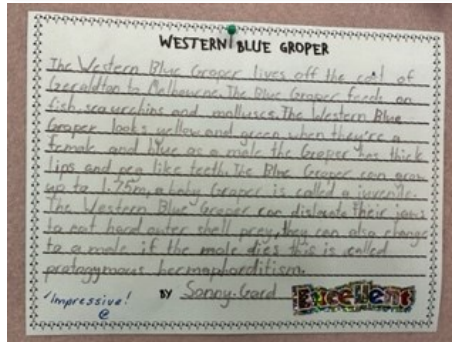 WESTERN BLUE GROPER
The Western Blue Groper lives off the cost of
Geraldton to Melbourne. The Blue Groper feeds on
fish, sea urchins and molluscs. The Western Blue
Groper looks yellow and green when they're a
female and blue as a male the Groper has thick
lips and peg like teeth. The Blue Groper can grow
up to 1.75m, a baby Groper is called a juvenile.
The Western Blue Groper can dislocate their jaws
to eat hard outer shell prey, they can also change
to a male if the male dies this is called
protogynous hermaphorditism.
BY Sonny.Gard
Excellent
Impressive!